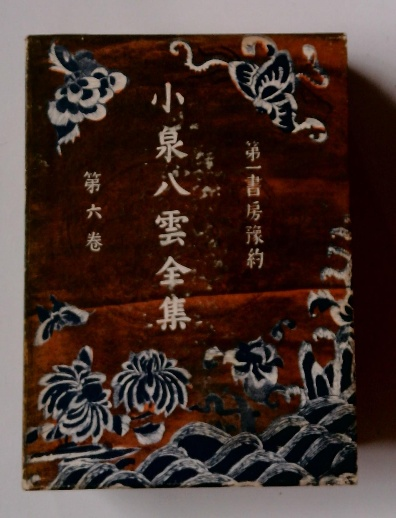 第一書房豫約
小泉八雲全集
第六卷